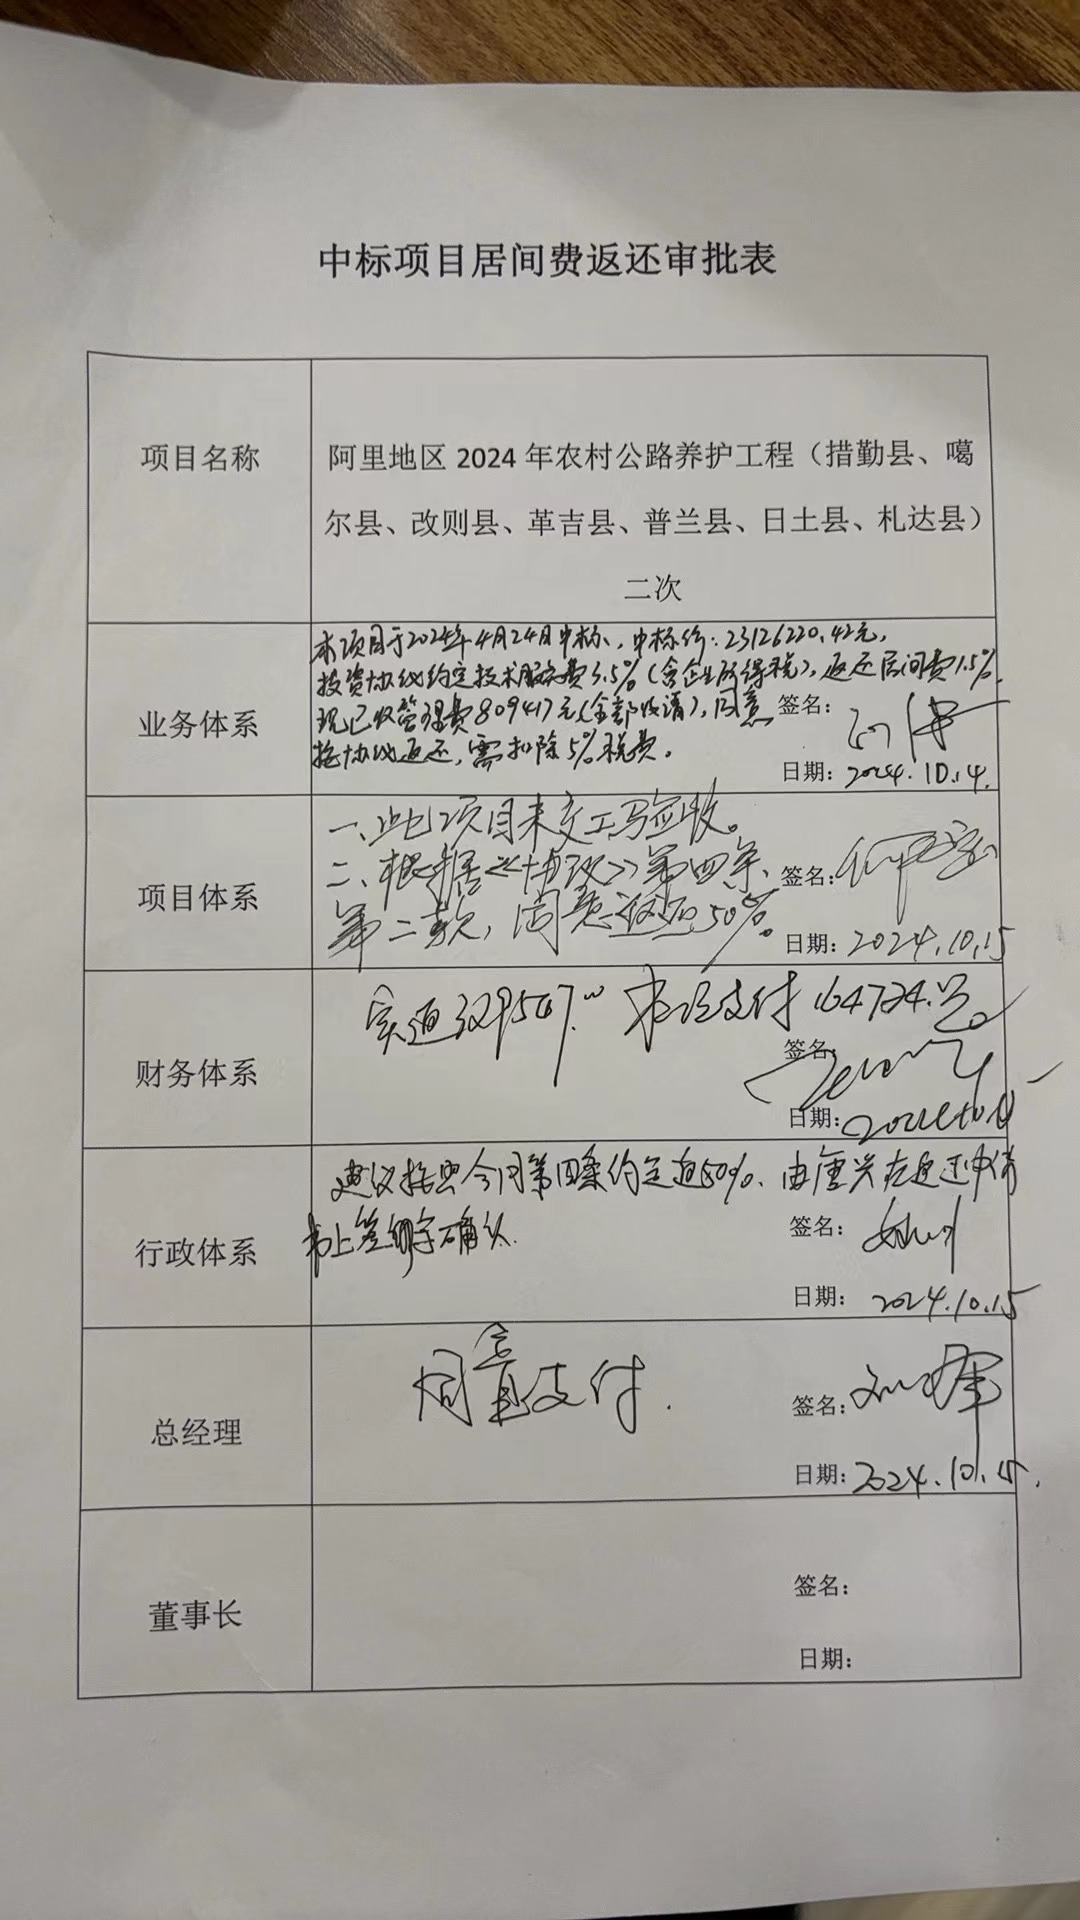 中标项目居间费返还审批表
项目名称
阿里地区 2024 年农村公路养护工程（措勤县、噶
尔县、改则县、革吉县、普兰县、日土县、札达县）
二次
业务体系
本项目于2024年4月24日中标、中标价：23126220.42元，
投资协议约定技术服务费3.5%（含企业所得税），返还居间费1.5%，
现已收管理费809417元（全部收清），同意
按协议返还，需扣除5%税费。
签名：
日期：2024.10.14.
项目体系
一、此项目未交工验收。
二、根据《协议》第四条、
第二款，同意返还50%。
签名：
日期：2024.10.15
财务体系
实返329547.00 本次支付164774.
签名：
日期：
行政体系
建议按照合同第四条约定返50%、由唐兴在返还申请
书上签字确认
签名：
日期：2024.10.15
总经理
同意支付.
签名：
日期：2024.10.15.
董事长
签名：
日期：